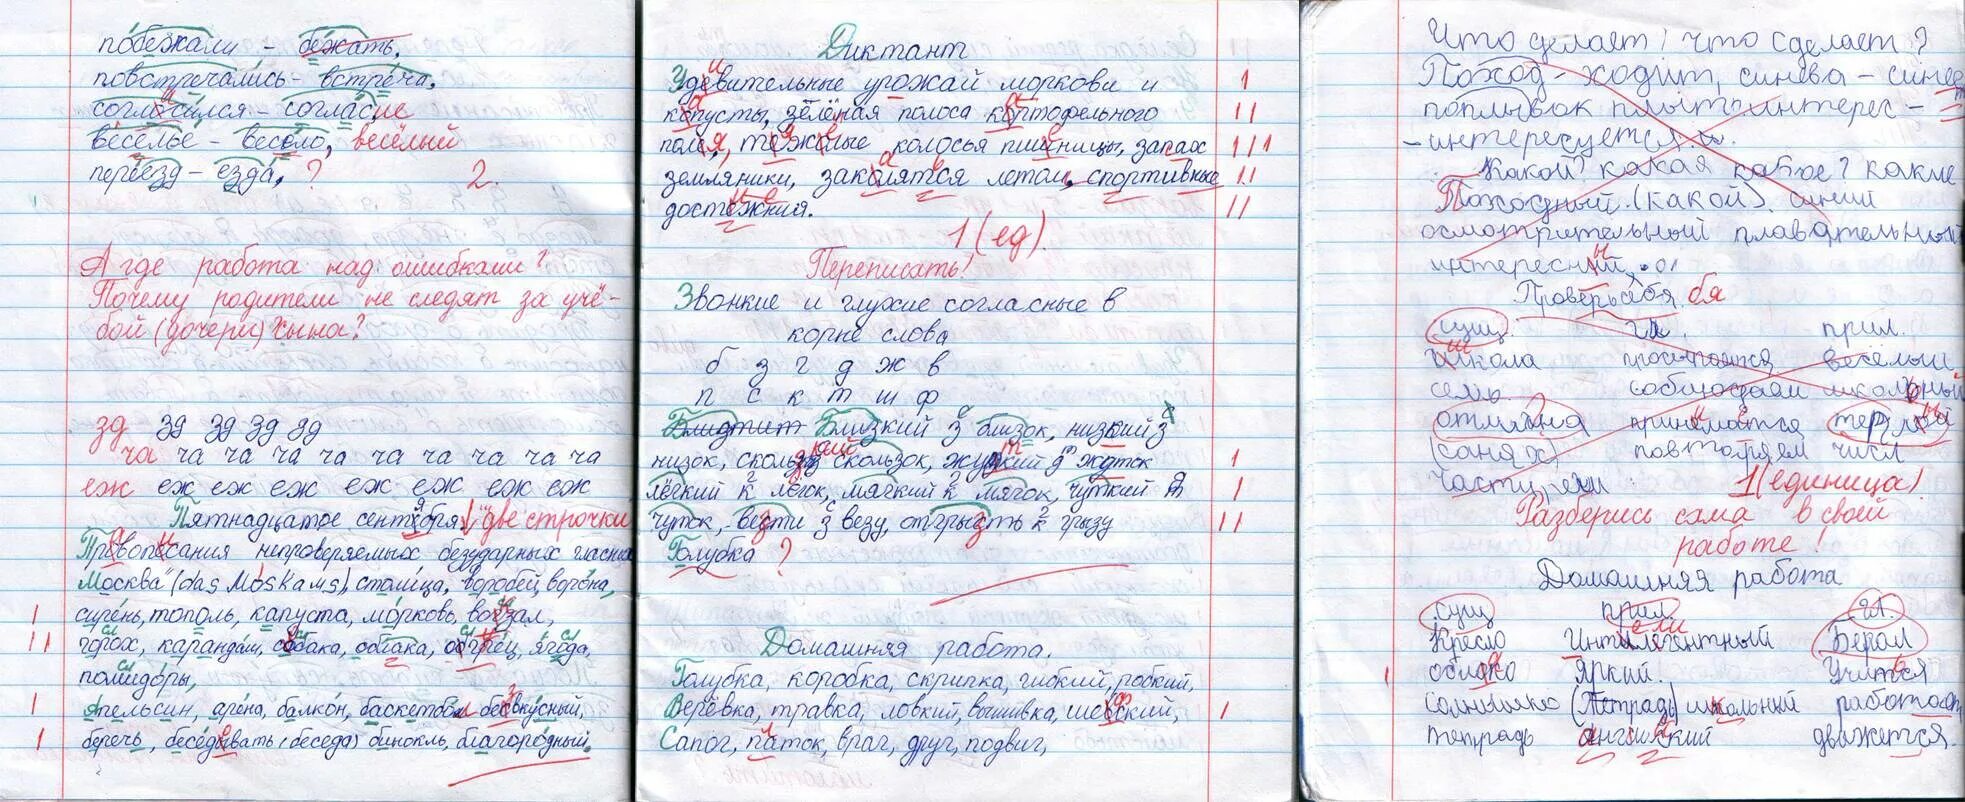 побежали - бежать,
повстречались - встреча,
согласился - согласие
веселье - весело, весёлый
переезд - езда, ? 2.
А где работа над ошибками?
Почему родители не следят за учё-
бой (дочери) сына?
зд зд зд зд зд
ча ча ча ча ча ча ча ча ча ча
еж еж еж еж еж еж еж еж
Пятнадцатое сентября. "две строчки
Правописания непроверяемых безударных гласных
Москва (das Moskaus), столица, воробей, ворона,
I сирень, тополь, капуста, морковь, вокзал,
II горох, карандаш, собака, облака, огурец, ягода,
помидоры,
I апельсин, арена, балкон, баскетбол безвкусный,
I беречь, беседовать (беседа) бинокль, благородный.
Диктант
Удевительные урожай моркови и I
копусты, зелёная полоса кортофельного II
поля, тяжёлые колосья пшеницы, запах III
земляники, закалятся летом, спортивные II
достежния. II
1 (ед).
Переписать!
Звонкие и глухие согласные в
корне слова
б з г д ж в
п с к т ш ф
Близкий з близок, низкий з
низок, скользкий скользок, жуткий жуток I
лёгкий к легок, мягкий к мягок, чуткий т I
чуток, везти з везу, отгрызть к грызу II
Голубка ?
Домашняя работа.
Голубка, коробка, скрипка, гибкий, робкий,
Верёвка, травка, ловкий, вышивка, шефский, I
Сапог, паток, врач, друг, подвиг,
Что делает? что сделает?
Поход - ходит, синева - синеет
поплывок плыть интерес -
- интересуется.
Какой? какая какое? какие
Походный (какой). синий
осмотрительный плавательный
интересный,
Проверь себя. бя
сущ. гл. прил.
школа просыпается весёлый
семь. соблюдаем школьный
отмяная принемается терпляй
(санях) повторяем числ
части речи 1 (единица).
Разберись сама в своей
работе!
Домашняя работа
сущ прил. гл.
Кресло Интилегентный Берал
I облако яркий. Учится
солнышко (Тетрадь) школьний работает
тетрадь английский движется.